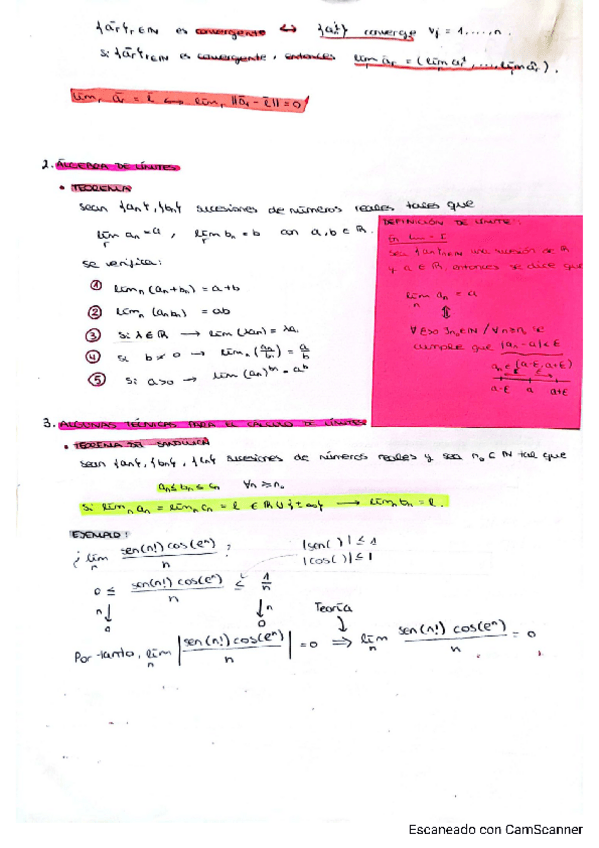 {ār}r∈ℕ es convergente ↔ {aʲr} converge ∀j = 1,...,n.
Si {ār}r∈ℕ es convergente, entonces lím ār = (lím a¹r, ..., lím aⁿr).
límr ār = l̄ ↔ límr ||ār - l̄|| = 0
2. ÁLGEBRA DE LÍMITES
• TEOREMA
Sean {an}, {bn} sucesiones de números reales tales que
lím an = a, lím bn = b con a, b ∈ ℝ.
r r
se verifica:
① límn (an + bn) = a + b
② límn (an bn) = ab
③ Si λ ∈ ℝ → lím (λan) = λa.
④ Si b ≠ 0 → límn (an/bn) = a/b
⑤ Si a > 0 → lím (an)^bn = a^b
DEFINICIÓN DE LÍMITE:
Sea {an}n∈ℕ una sucesión de ℝ
y a ∈ ℝ, entonces se dice que
lím an = a
n
⇕
∀ε>0 ∃n₀∈ℕ / ∀n≥n₀ se
cumple que |an - a| < ε
an ∈ (a-ε, a+ε)
a-ε a a+ε
3. ALGUNAS TÉCNICAS PARA EL CÁLCULO DE LÍMITES
• TEOREMA DEL SANDWICH
Sean {an}, {bn}, {cn} sucesiones de números reales y sea n₀ ∈ ℕ tal que
an ≤ bn ≤ cn ∀n ≥ n₀
Si límn an = límn cn = l ∈ ℝ ∪ {±∞} → límn bn = l.
EJEMPLO:
¿ lím n sen(n!) cos(eⁿ) / n ?
|sen( )| ≤ 1
|cos( )| ≤ 1
0 ≤ sen(n!) cos(eⁿ) / n ≤ 1/n
n↓ ↓n
0 0
Teoría
Por tanto, lím n |sen(n!) cos(eⁿ) / n| = 0 ⇒ lím n sen(n!) cos(eⁿ) / n = 0
Escaneado con CamScanner